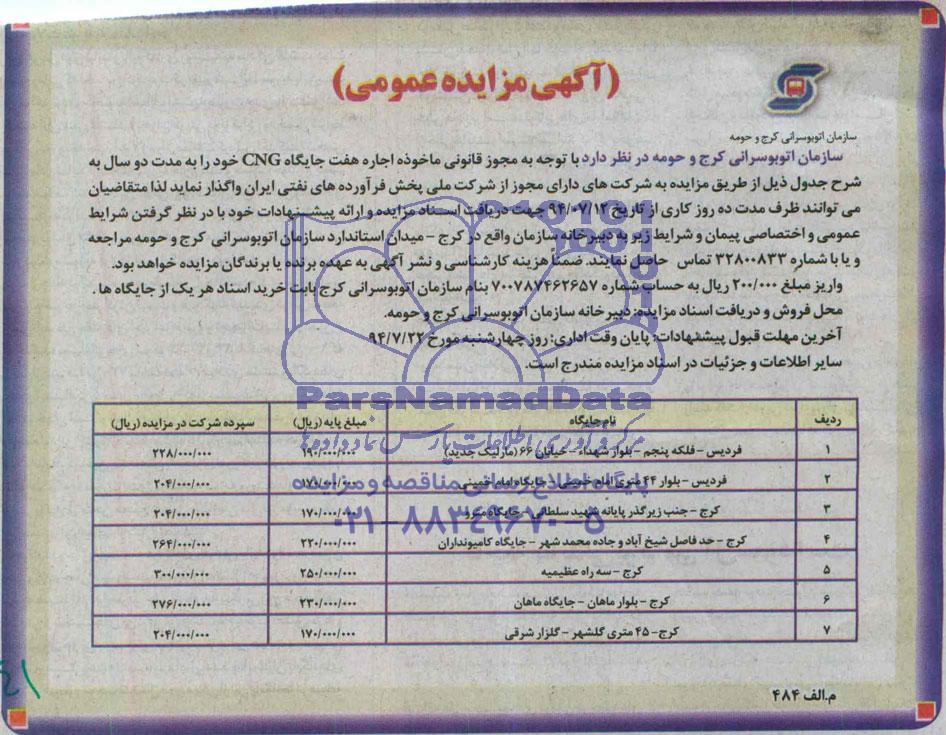 (آگهی مزایده عمومی)
سازمان اتوبوسرانی کرج و حومه
سازمان اتوبوسرانی کرج و حومه در نظر دارد با توجه به مجوز قانونی ماخوذه اجاره هفت جایگاه CNG خود را به مدت دو سال به
شرح جدول ذیل از طریق مزایده به شرکت های دارای مجوز از شرکت ملی پخش فرآورده های نفتی ایران واگذار نماید لذا متقاضیان
می توانند ظرف مدت ده روز کاری از تاریخ ۹۴/۰۷/۱۲ جهت دریافت اسناد مزایده و ارائه پیشنهادات خود با در نظر گرفتن شرایط
عمومی و اختصاصی پیمان و شرایط زیر به دبیرخانه سازمان واقع در کرج - میدان استاندارد سازمان اتوبوسرانی کرج و حومه مراجعه
و یا با شماره ۳۲۸۰۰۸۳۳ تماس حاصل نمایند. ضمناً هزینه کارشناسی و نشر آگهی به عهده برنده یا برندگان مزایده خواهد بود.
واریز مبلغ ۲۰۰/۰۰۰ ریال به حساب شماره ۷۰۰۷۸۷۴۶۲۶۵۷ بنام سازمان اتوبوسرانی کرج بابت خرید اسناد هر یک از جایگاه ها.
محل فروش و دریافت اسناد مزایده: دبیرخانه سازمان اتوبوسرانی کرج و حومه.
آخرین مهلت قبول پیشنهادات: پایان وقت اداری: روز چهارشنبه مورخ ۹۴/۷/۲۲
سایر اطلاعات و جزئیات در اسناد مزایده مندرج است.
ParsNamadData
مرکز فرآوری اطلاعات پارس نماد داده ها
پایگاه اطلاع رسانی مناقصه و مزایده
۰۲۱-۸۸۳۴۹۶۷۰-۵
ردیف نام جایگاه مبلغ پایه (ریال) سپرده شرکت در مزایده (ریال)
۱ فردیس - فلکه پنجم - بلوار شهداء - خیابان ۶۶ (مارلیک جدید) ۱۹۰/۰۰۰/۰۰۰ ۲۲۸/۰۰۰/۰۰۰
۲ فردیس - بلوار ۴۴ متری امام خمینی - جایگاه امام خمینی ۱۷۰/۰۰۰/۰۰۰ ۲۰۴/۰۰۰/۰۰۰
۳ کرج - جنب زیرگذر پایانه شهید سلطانی - جایگاه مترو ۱۷۰/۰۰۰/۰۰۰ ۲۰۴/۰۰۰/۰۰۰
۴ کرج - حد فاصل شیخ آباد و جاده محمد شهر - جایگاه کامیونداران ۲۲۰/۰۰۰/۰۰۰ ۲۶۴/۰۰۰/۰۰۰
۵ کرج - سه راه عظیمیه ۲۵۰/۰۰۰/۰۰۰ ۳۰۰/۰۰۰/۰۰۰
۶ کرج - بلوار ماهان - جایگاه ماهان ۲۳۰/۰۰۰/۰۰۰ ۲۷۶/۰۰۰/۰۰۰
۷ کرج- ۴۵ متری گلشهر - گلزار شرقی ۱۷۰/۰۰۰/۰۰۰ ۲۰۴/۰۰۰/۰۰۰
م.الف ۴۸۴